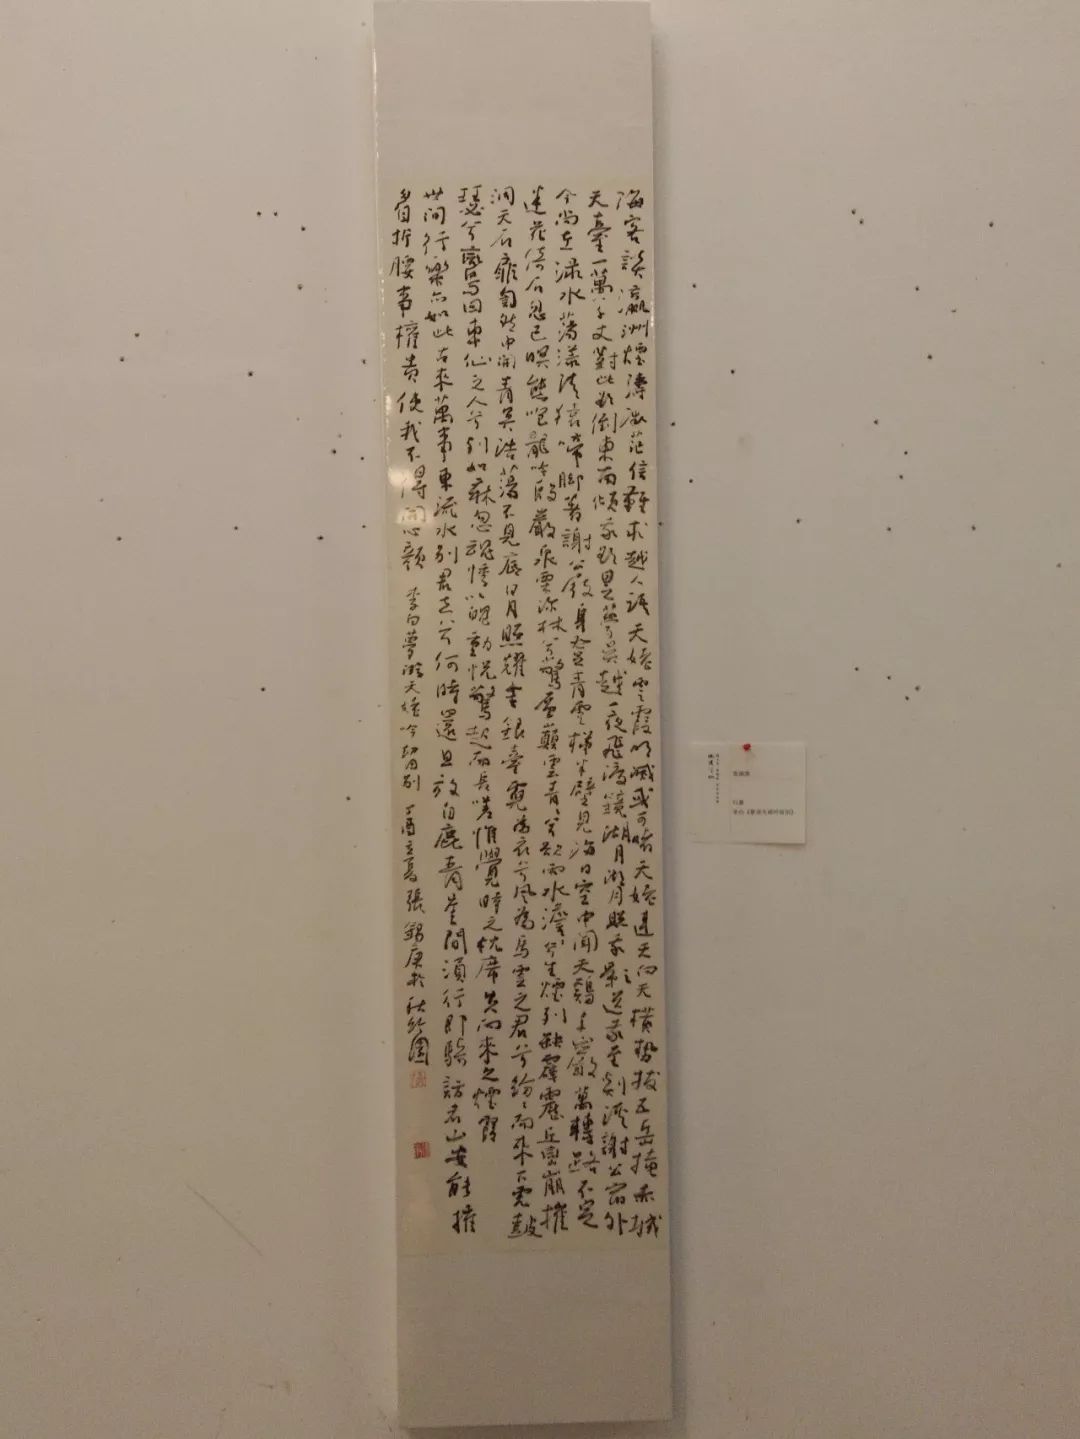 海客談瀛洲煙濤微茫信難求越人語天姥雲霞明滅或可睹天姥連天向天橫勢拔五岳掩赤城
天臺一萬八千丈對此欲倒東南傾我欲因之夢吳越一夜飛渡鏡湖月湖月照我影送我至剡溪謝公宿處
今尚在淥水蕩漾清猿啼脚著謝公屐身登青雲梯半壁見海日空中聞天鷄千巖萬轉路不定
迷花倚石忽已暝熊咆龍吟殷巖泉栗深林兮驚層巔雲青青兮欲雨水澹澹兮生煙列缺霹靂丘巒崩摧
洞天石扉訇然中開青冥浩蕩不見底日月照耀金銀臺霓為衣兮風為馬雲之君兮紛紛而來下虎鼓
瑟兮鸞回車仙之人兮列如麻忽魂悸以魄動怳驚起而長嗟惟覺時之枕席失向來之煙霞
世間行樂亦如此古來萬事東流水別君去兮何時還且放白鹿青崖間須行即騎訪名山安能摧
眉折腰事權貴使我不得開心顏 李白夢游天姥吟留別 丁酉立夏張錫庚於
行書
李白《夢游天姥吟留別》